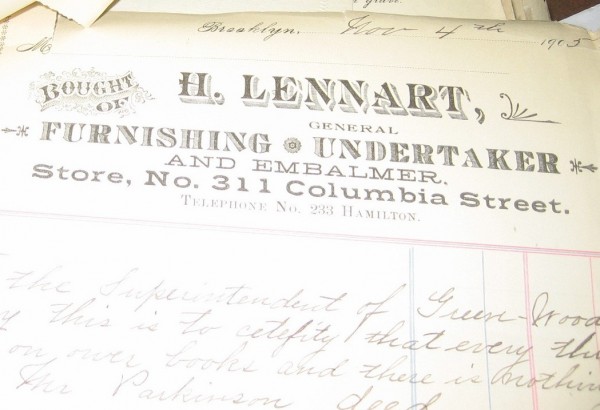 grave.
Brooklyn, Nov 4th 1905
M
BOUGHT OF
H. LENNART,
GENERAL
FURNISHING UNDERTAKER
AND EMBALMER.
Store, No. 311 Columbia Street.
TELEPHONE No. 233 HAMILTON.
the Superintendent of Green-Wood
this is to cetefity that every th
on ower books and there is nothin
Mr Parkinson deed